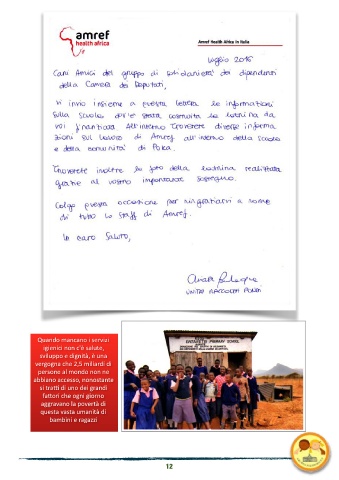 amref
health africa
Amref Health Africa in Italia
luglio 2016
Cari Amici del gruppo di solidarietà dei dipendenti
della Camera dei Deputati,
Vi invio insieme a questa lettera le informazioni
sulla scuola dov'è stata costruita la latrina da
voi finanziata. All'interno troverete diverse informa
zioni sul lavoro di Amref all'interno della scuola
e della comunità di
Troverete inoltre le foto della latrina realizzata
grazie al vostro importante sostegno.
Colgo questa occasione per ringraziarvi a nome
di tutto lo staff di Amref.
Un caro saluto,
Unità Raccolta Fondi
Quando mancano i servizi
igienici non c'è salute,
sviluppo e dignità, è una
vergogna che 2,5 miliardi di
persone al mondo non ne
abbiano accesso, nonostante
si tratti di uno dei grandi
fattori che ogni giorno
aggravano la povertà di
questa vasta umanità di
bambini e ragazzi
PRIMARY SCHOOL
12